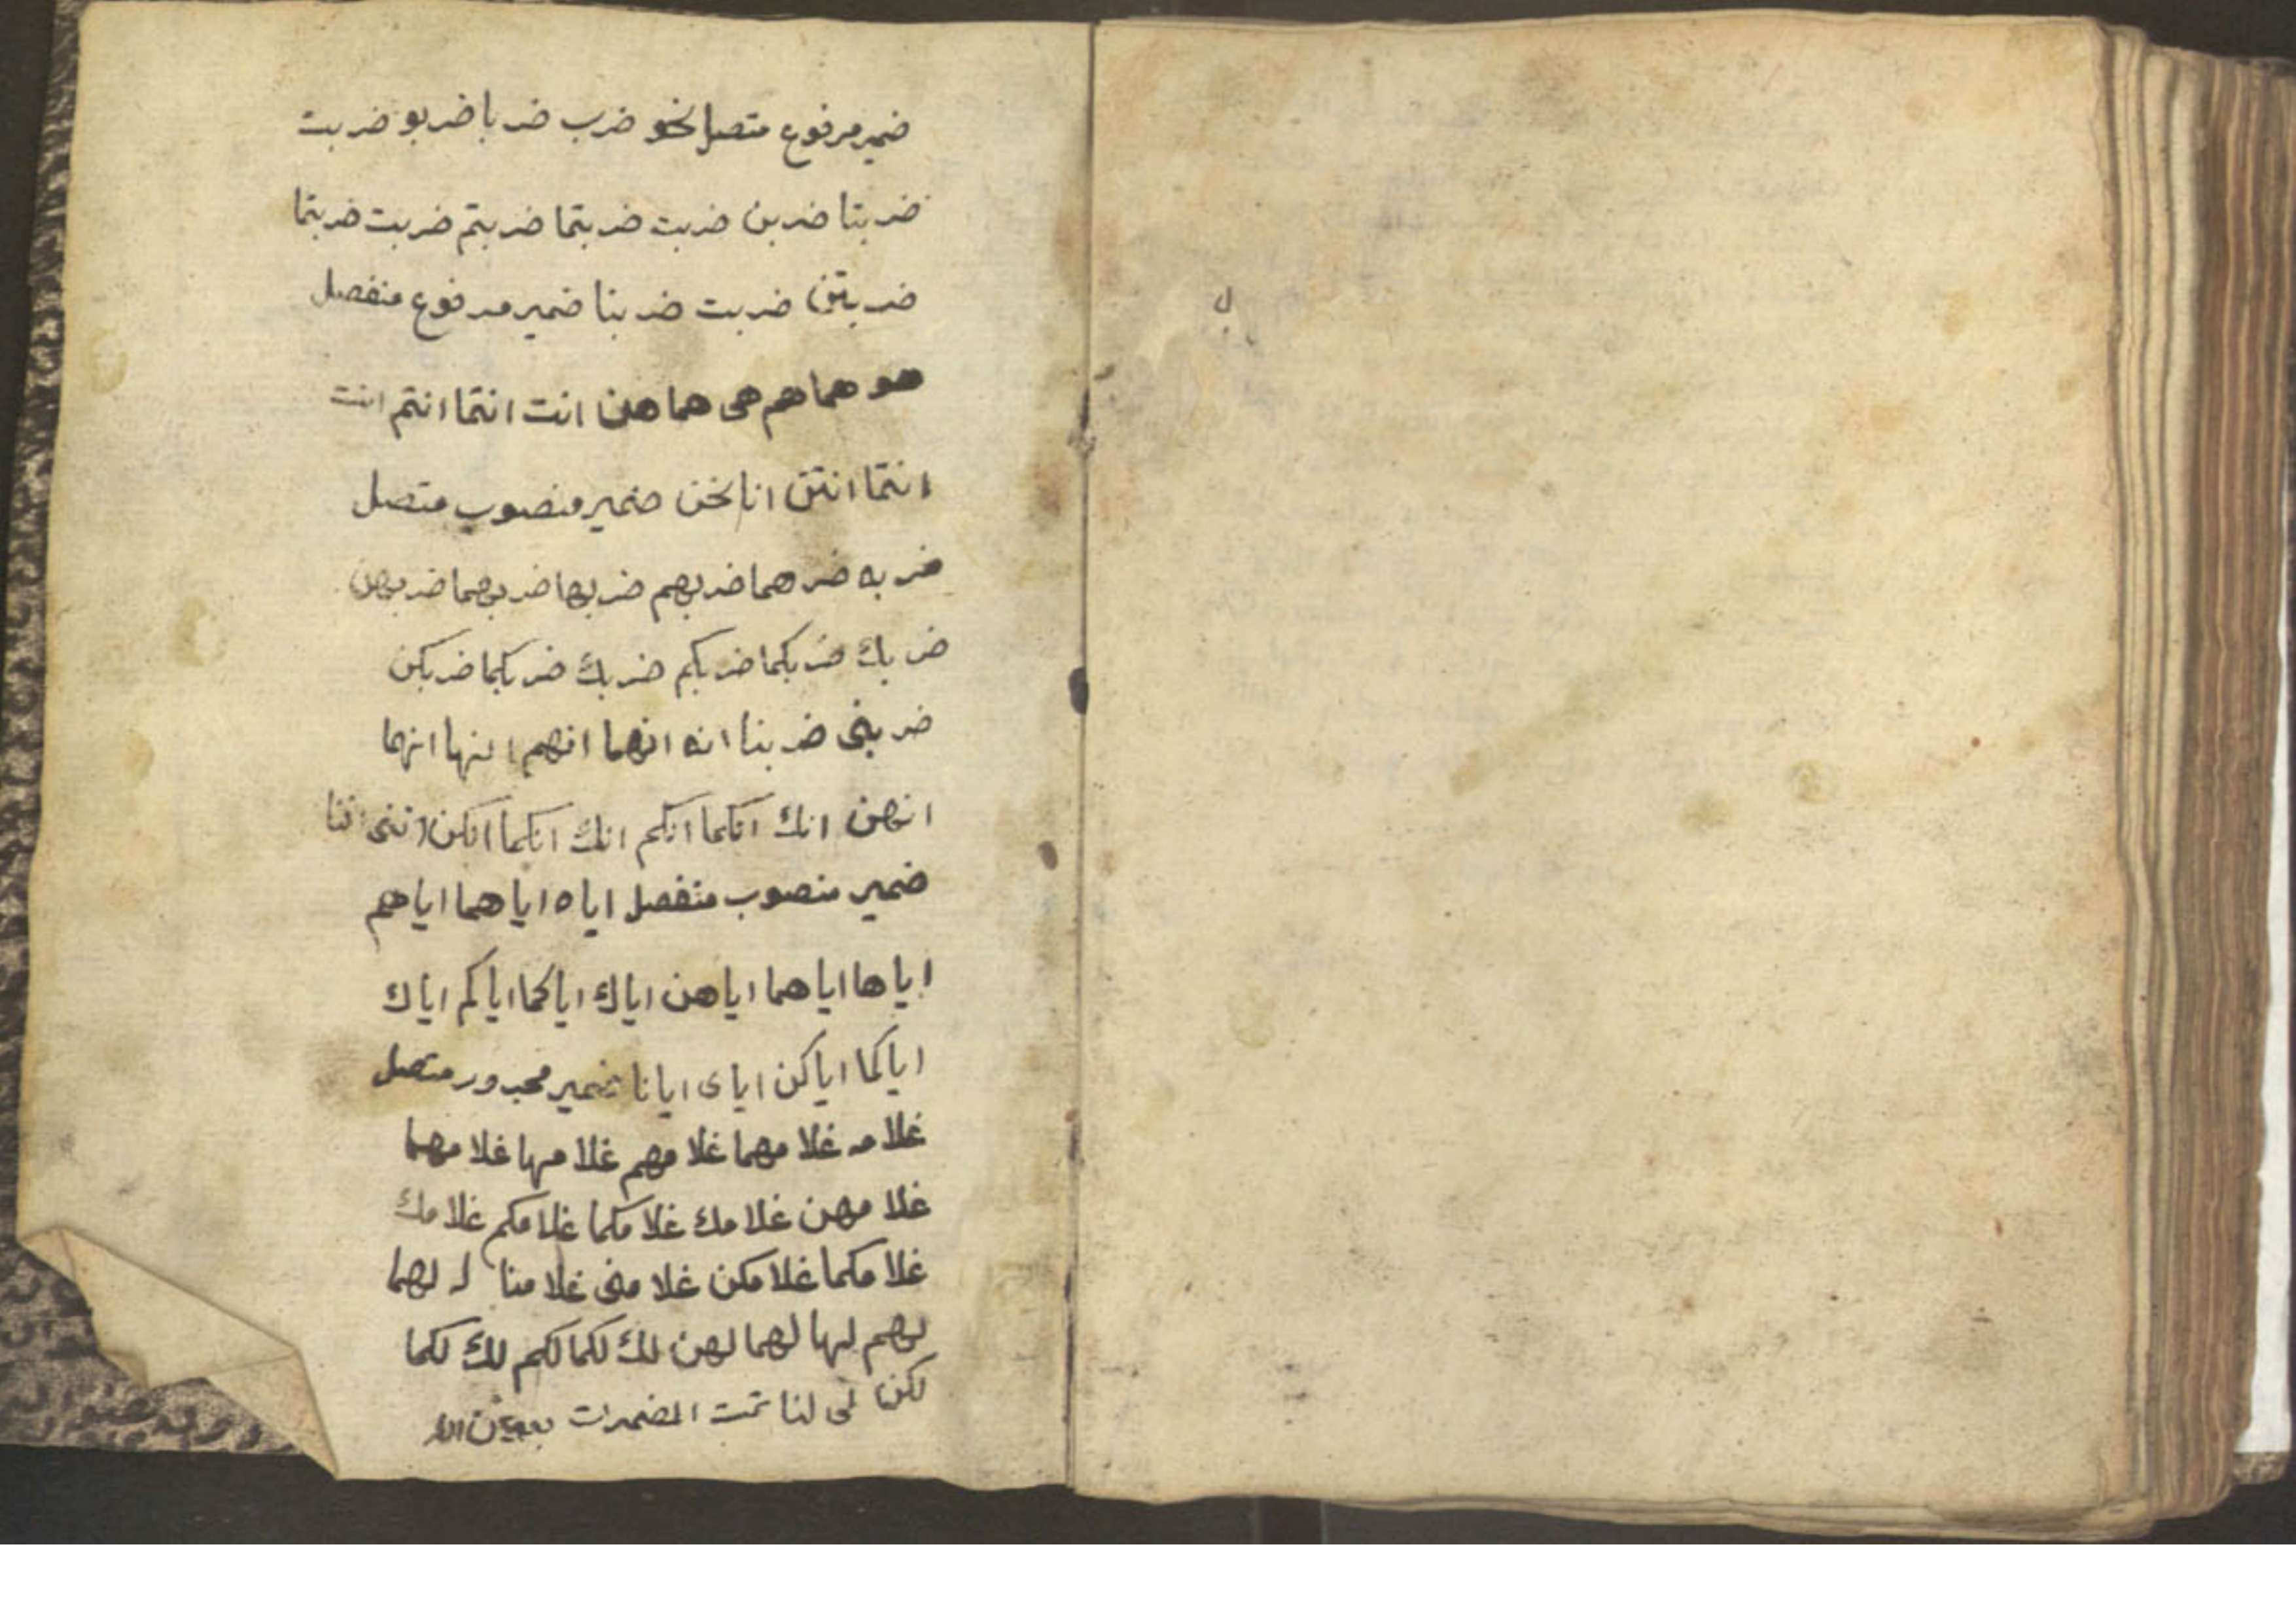 ضمير مرفوع متصل نحو ضرب ضربا ضربو ضربت
ضربتا ضربن ضربت ضربتما ضربتم ضربت ضربتما
ضربتن ضربت ضربنا ضمير مرفوع منفصل
هو هما هم هى هما هن انت انتما انتم انت
انتما انتن انا نحن ضمير منصوب متصل
ضربه ضرهما ضربهم ضربها ضربهما ضربهن
ضربك ضربكما ضربكم ضربك ضربكما ضربكن
ضربنى ضربنا انه انهما انهم انها انهما
انهن انك انكما انكم انك انكما انكن اننى اننا
ضمير منصوب منفصل اياه اياهما اياهم
اياها اياهما اياهن اياك اياكما اياكم اياك
اياكما اياكن اياى ايانا ضمير مجرور متصل
غلامه غلامهما غلامهم غلامها غلامهما
غلامهن غلامك غلامكما غلامكم غلامك
غلامكما غلامكن غلامنى غلامنا له لهما
لهم لها لهما لهن لك لكما لكم لك لكما
لكن لى لنا تمت المضمرات بعون الله